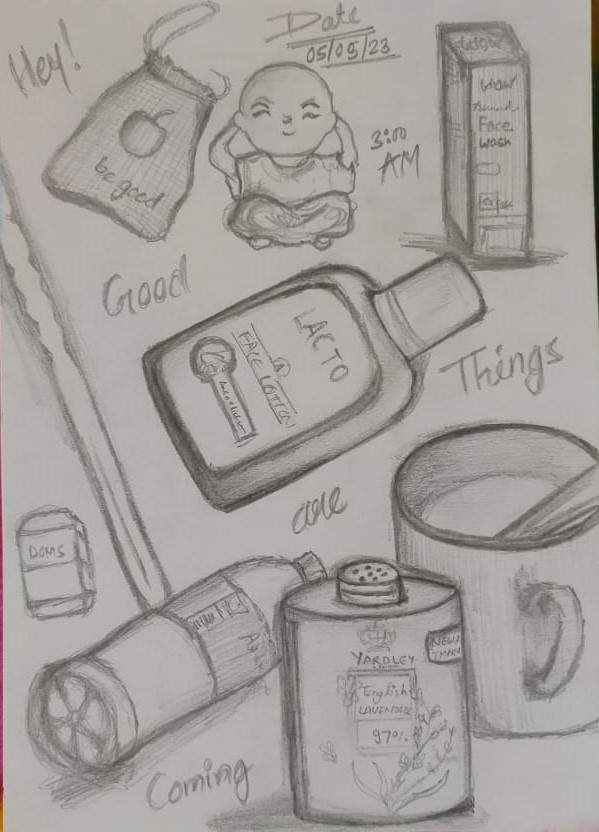 Hey!
Date
05/05/23
3:00
AM
be good
wow
Face
wash
Good
LACTO
FACE LOTION
Things
are
DOMS
YARDLEY
English
LAVENDER
97%
Coming